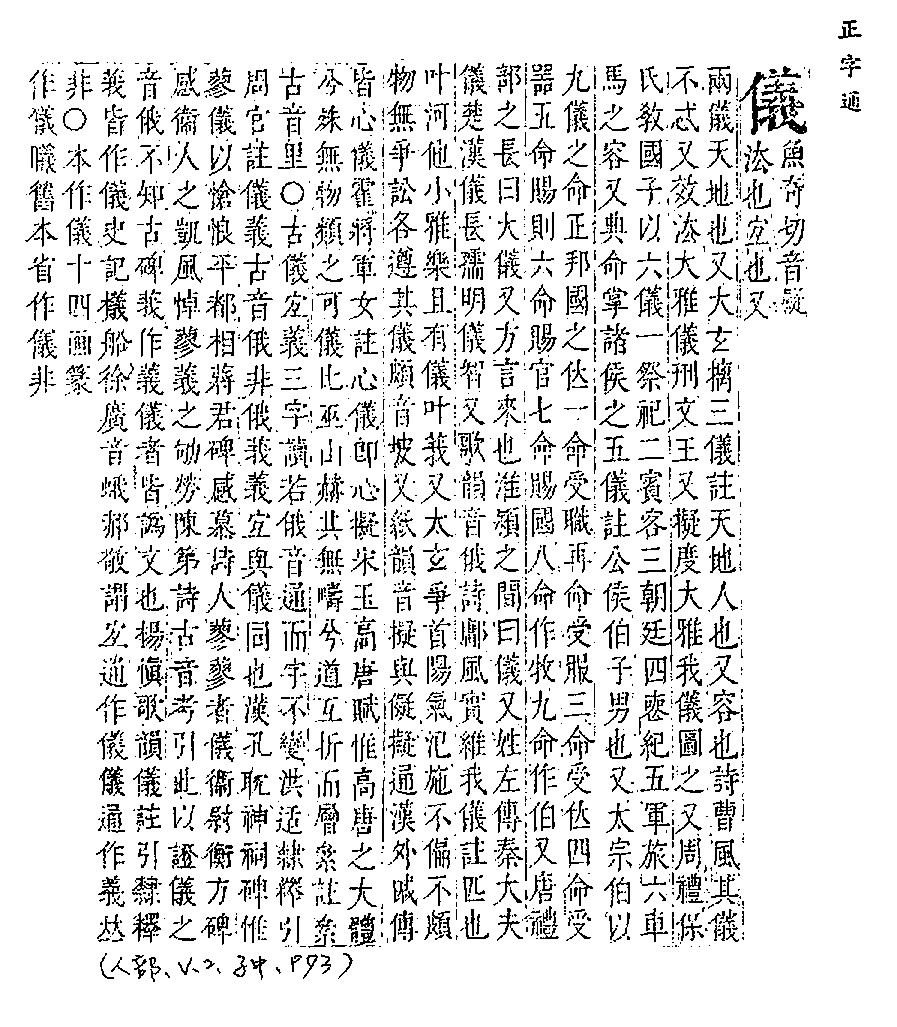 正字通
儀
魚奇切音疑
法也宜也又
兩儀天地也又大玄摛三儀註天地人也又容也詩曹風其儀
不忒又效法大雅儀刑文王又擬度大雅我儀圖之又周禮保
氏敎國子以六儀一祭祀二賓客三朝廷四喪紀五軍旅六車
馬之容又典命掌諸侯之五儀註公侯伯子男也又太宗伯以
九儀之命正邦國之位一命受職再命受服三命受位四命受
器五命賜則六命賜官七命賜國八命作牧九命作伯又唐禮
部之長曰大儀又方言來也淮潁之間曰儀又姓左傳秦大夫
儀楚漢儀長孺明儀智又歌韻音俄詩鄘風實維我儀註匹也
叶河他小雅樂且有儀叶我又太玄爭首陽氣氾施不偏不頗
物無爭訟各遵其儀頗音坡又紙韻音擬與儗擬通漢外戚傳
皆心儀霍將軍女註心儀卽心擬宋玉高唐賦惟高唐之大體
兮殊無物類之可儀比巫山赫其無疇兮道互折而層絫註絫
古音里○古儀宜義三字讀若俄音通而字不變洪适隷釋引
周官註儀義古音俄非俄義義宜與儀同也漢孔耽神祠碑惟
蓼儀以愴悢平都相蔣君碑感慕詩人蓼蓼者儀衞尉衡方碑
感衞人之凱風悼蓼義之劬勞陳第詩古音考引此以證儀之
音俄不知古碑義作義儀者皆譌文也楊愼歌韻儀註引隸釋
義皆作儀史記檥船徐廣音蛾郝敬謂宜通作儀儀通作義𠀤
非○本作儀十四畫篆
作儀㬢舊本省作儀非
(人部、V.2、子中、P93)